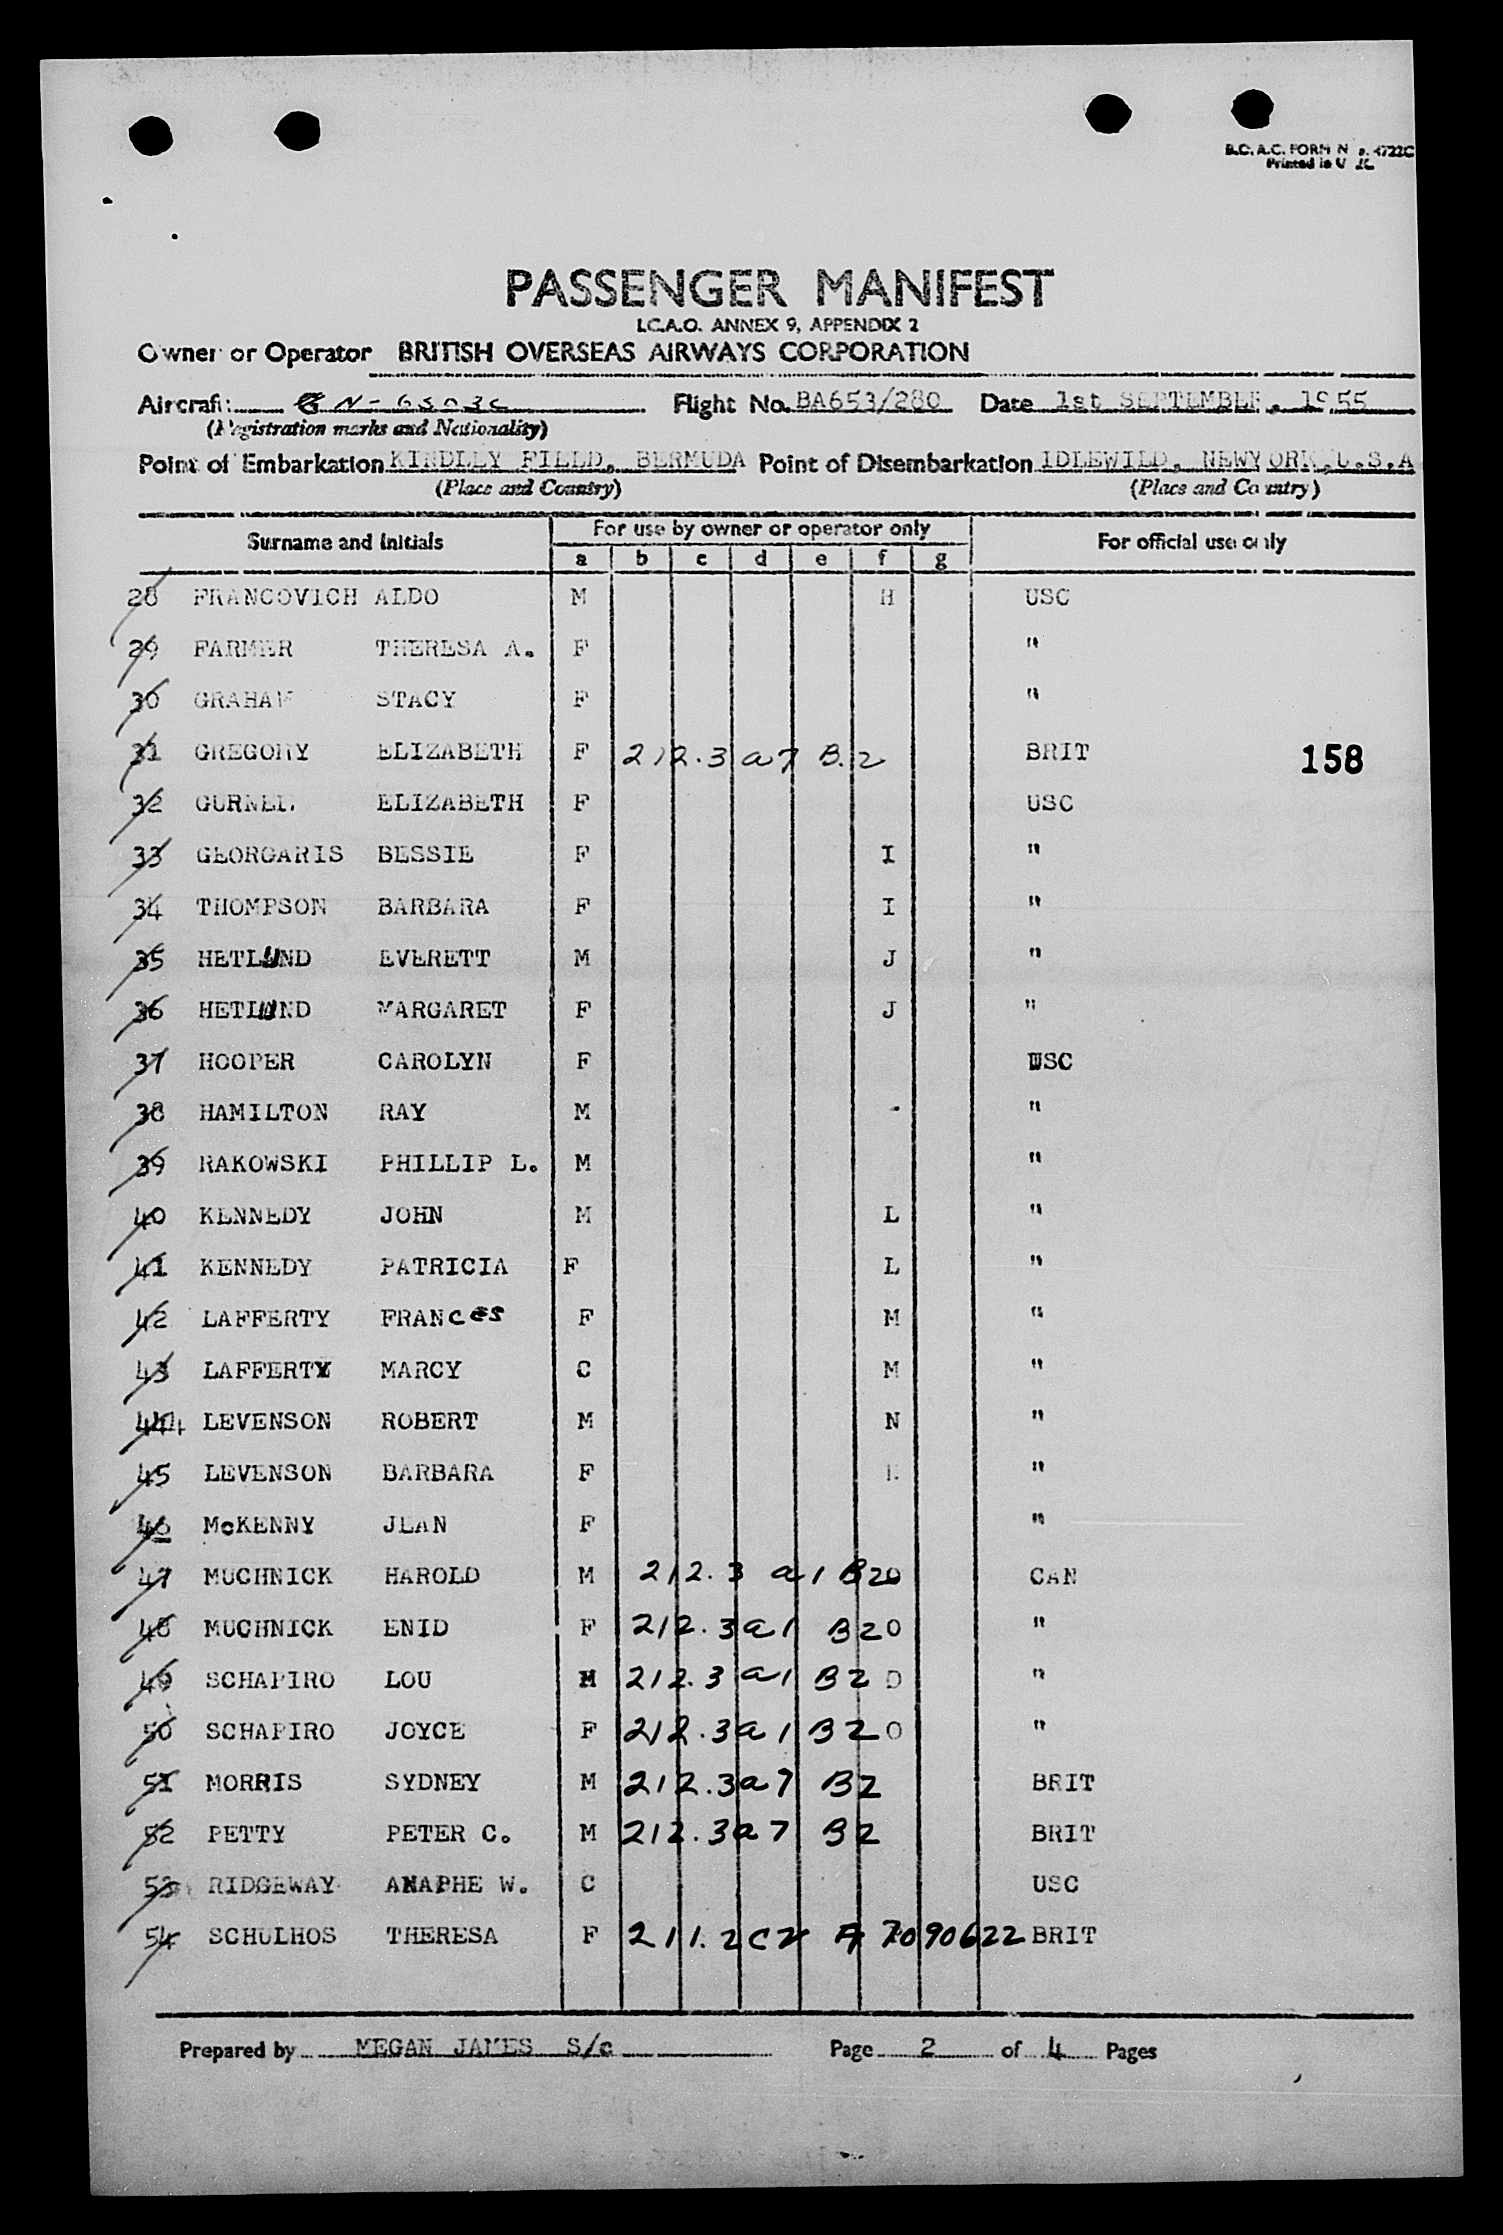 B.O.A.C. FORM No. 4722C
Printed in U.K.
PASSENGER MANIFEST
I.C.A.O. ANNEX 9, APPENDIX 2
Owner or Operator BRITISH OVERSEAS AIRWAYS CORPORATION
Aircraft N-6503C Flight No. BA653/280 Date 1st SEPTEMBER, 1955
(Registration marks and Nationality)
Point of Embarkation KINDLEY FIELD, BERMUDA Point of Disembarkation IDLEWILD, NEWYORK, U.S.A
(Place and Country) (Place and Country)
Surname and Initials For use by owner or operator only For official use only
a b c d e f g
28 FRANCOVICH ALDO M H USC
29 FARMER THERESA A. F "
30 GRAHAM STACY F "
31 GREGORY ELIZABETH F 212.3 a7 B.2 BRIT 158
32 ELIZABETH F USC
33 GEORGARIS BESSIE F I "
34 THOMPSON BARBARA F I "
35 HETLUND EVERETT M J "
36 HETLUND MARGARET F J "
37 HOOPER CAROLYN F USC
38 HAMILTON RAY M - "
39 RAKOWSKI PHILLIP L. M "
40 KENNEDY JOHN M L "
41 KENNEDY PATRICIA F L "
42 LAFFERTY FRANCES F M "
43 LAFFERTY MARCY C M "
44 LEVENSON ROBERT M N "
45 LEVENSON BARBARA F "
46 McKENNY JEAN F "
47 MUCHNICK HAROLD M 212.3 a1 B2 O CAN
48 MUCHNICK ENID F 212.3 a1 B2 O "
49 SCHAPIRO LOU M 212.3 a1 B2 O "
50 SCHAPIRO JOYCE F 212.3 a1 B2 O "
51 MORRIS SYDNEY M 212.3 a7 B2 BRIT
52 PETTY PETER C. M 212.3 a7 B2 BRIT
53 RIDGEWAY ANAPHE W. C USC
54 SCHULHOS THERESA F 211.2 c2 A 7090622 BRIT
Prepared by MEGAN JAMES S/c Page 2 of 4 Pages